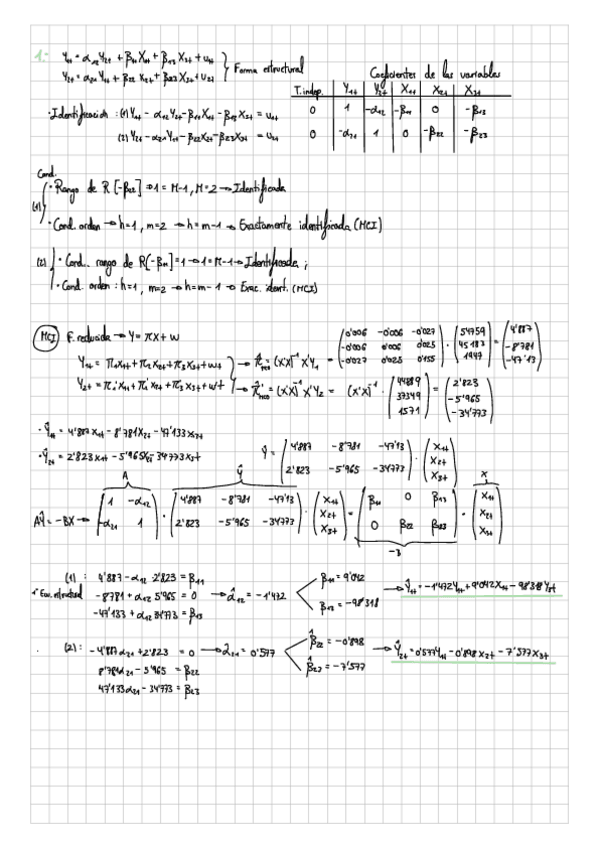 1.- Y₁ₜ = α₁₂Y₂ₜ + β₁₁X₁ₜ + β₁₃X₃ₜ + u₁ₜ
Y₂ₜ = α₂₁Y₁ₜ + β₂₂X₂ₜ + β₂₃X₃ₜ + u₂ₜ } Forma estructural
Coeficientes de las variables
T. indep. Y₁ₜ Y₂ₜ X₁ₜ X₂ₜ X₃ₜ
· Identificación : (1) Y₁ₜ - α₁₂Y₂ₜ - β₁₁X₁ₜ - β₁₃X₃ₜ = u₁ₜ 0 1 -α₁₂ -β₁₁ 0 -β₁₃
(2) Y₂ₜ - α₂₁Y₁ₜ - β₂₂X₂ₜ - β₂₃X₃ₜ = u₂ₜ 0 -α₂₁ 1 0 -β₂₂ -β₂₃
Cond.
(1) · Rango de R [-β₂₂] → 1 = M-1, M=2 → Identificada
· Cond. orden → h=1, m=2 → h=m-1 → Exactamente identificada (MCI)
(2) · Cond. rango de R[-β₁₁] = 1 → 1 = M-1 → Identificada ;
· Cond. orden : h=1, m=2 → h=m-1 → Exac. ident. (MCI)
MCI F. reducida → Y = πX + w
Y₁ₜ = π₁X₁ₜ + π₂X₂ₜ + π₃X₃ₜ + wₜ → = (X'X)⁻¹ X'Y₁ =
0'006 -0'006 -0'027
-0'006 0'006 0'025
-0'027 0'025 0'155
·
54759
45187
1947
=
4'887
-8'781
-47'13
Y₂ₜ = π₁'X₁ₜ + π₂'X₂ₜ + π₃'X₃ₜ + wₜ → = (X'X)⁻¹ X'Y₂ = (X'X)⁻¹ ·
44889
37349
1571
=
2'823
-5'965
-34'773
· Ŷ₁ₜ = 4'887X₁ₜ - 8'781X₂ₜ - 47'133X₃ₜ
· Ŷ₂ₜ = 2'823X₁ₜ - 5'965X₂ₜ - 34'773X₃ₜ
Ŷ =
4'887 -8'781 -47'13
2'823 -5'965 -34'773
·
X₁ₜ
X₂ₜ
X₃ₜ
A Ŷ X
AŶ = -BX →
1 -α₁₂
-α₂₁ 1
·
4'887 -8'781 -47'13
2'823 -5'965 -34'773
·
X₁ₜ
X₂ₜ
X₃ₜ
=
β₁₁ 0 β₁₃
0 β₂₂ β₂₃
·
X₁ₜ
X₂ₜ
X₃ₜ
(1) : 4'887 - α₁₂ 2'823 = β₁₁
-8'781 + α₁₂ 5'965 = 0 → α̂₁₂ = -1'472
-47'133 + α₁₂ 34'773 = β₁₃
β̂₁₁ = 9'042
β̂₁₃ = -98'318
→ Ŷ₁ₜ = -1'472Y₂ₜ + 9'042X₁ₜ - 98'318X₃ₜ
(2) : -4'887α₂₁ + 2'823 = 0 → α̂₂₁ = 0'577
8'781α₂₁ - 5'965 = β₂₂
47'133α₂₁ - 34'773 = β₂₃
β̂₂₂ = -0'898
β̂₂₃ = -7'577
→ Ŷ₂ₜ = 0'577Y₁ₜ - 0'898X₂ₜ - 7'577X₃ₜ